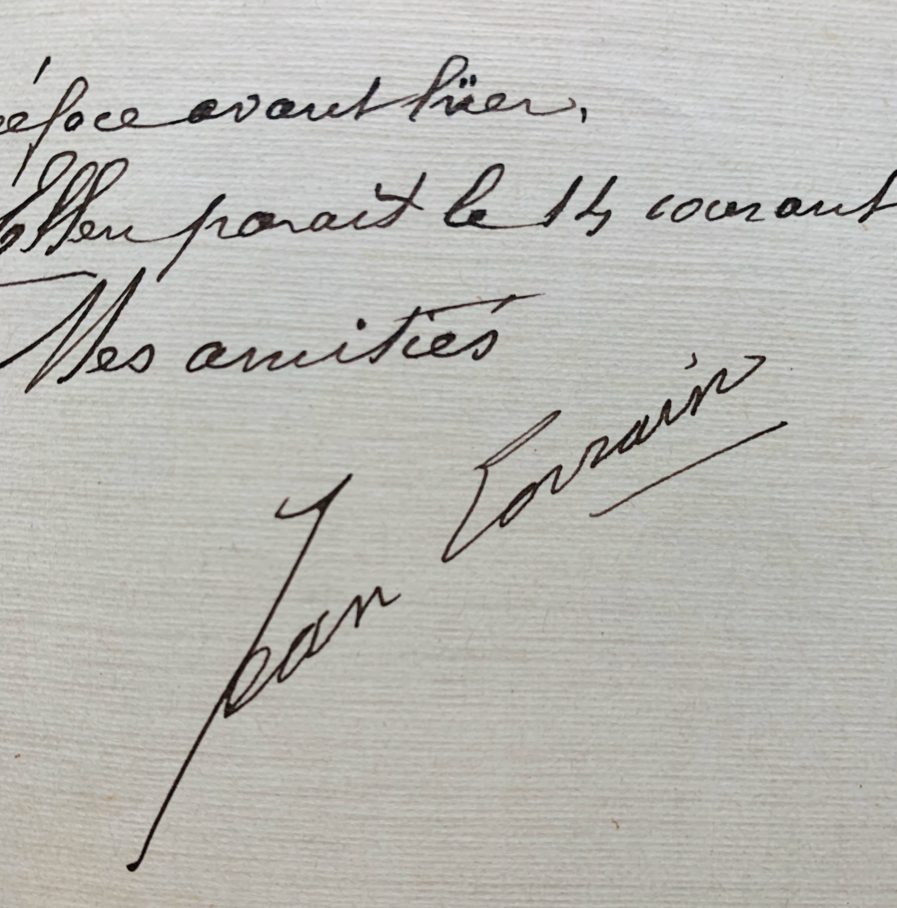 éface avant hïer.
Ellen parait le 14 courant
Mes amitiés
Jean Lorrain